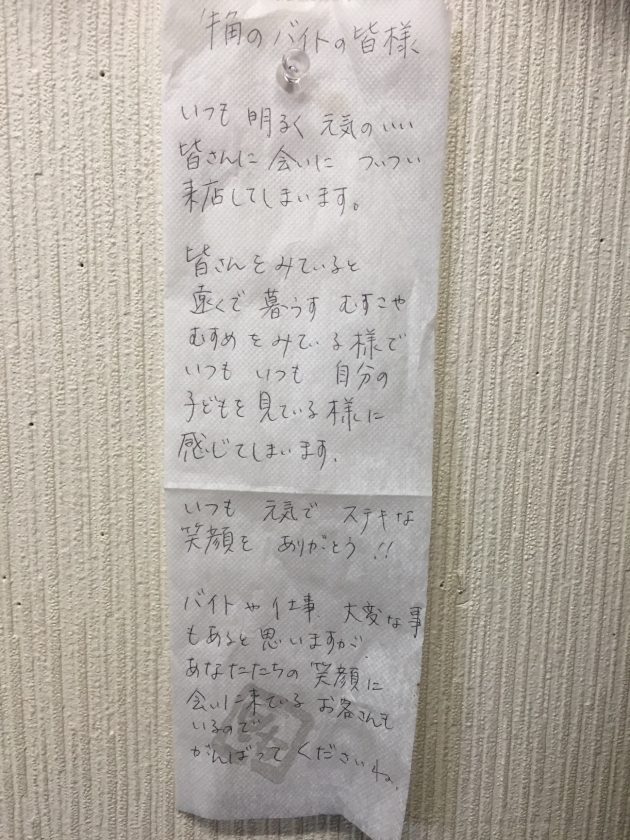 牛角のバイトの皆様
いつも 明るく 元気のいい
皆さんに 会いに ついつい
来店してしまいます。
皆さんをみていると
遠くで 暮らす むすこや
むすめをみている様で
いつも いつも 自分の
子どもを見ている様に
感じてしまいます。
いつも 元気で ステキな
笑顔を ありがとう!!
バイトや仕事 大変な事
もあると思いますが、
あなたたちの 笑顔に
会いに来ている お客さんも
いるので
がんばって くださいね。